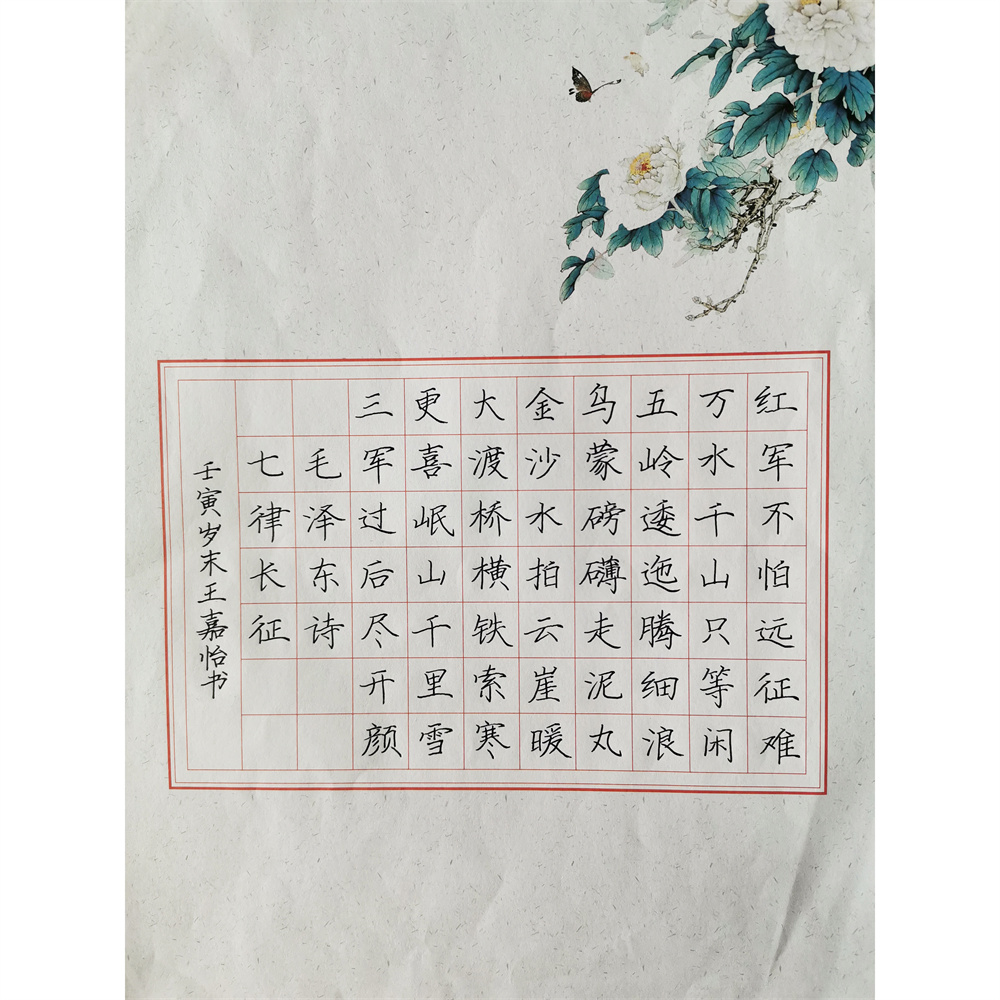 红军不怕远征难
万水千山只等闲
五岭逶迤腾细浪
乌蒙磅礴走泥丸
金沙水拍云崖暖
大渡桥横铁索寒
更喜岷山千里雪
三军过后尽开颜
毛泽东诗
七律长征
壬寅岁末王嘉怡书